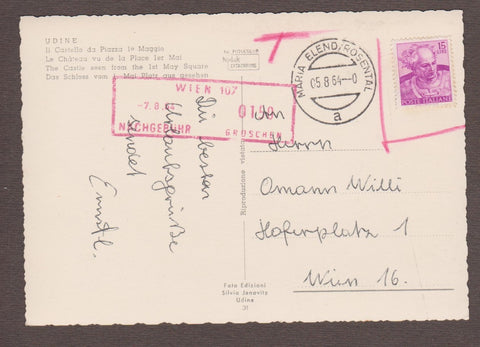 UDINE
Il Castello da Piazza 1° Maggio
Le Château vu de la Place 1er Mai
The Castle seen from the 1st May Square
Das Schloss vom 1 Mai Platz aus gesehen
Kodak
EKTACHROME
MARIA ELEND/ROSENTAL
05.8.64-0
a
15
POSTE ITALIANE
WIEN 107
-7.8.64
0150
NACHGEBÜHR
GROSCHEN
Die besten
Urlaubsgrüße
sendet
An
Herrn
Omann Willi
Hoferplatz 1
Wien 16.
Riproduzione vietata
Foto Edizioni
Silvio Janovitz
Udine